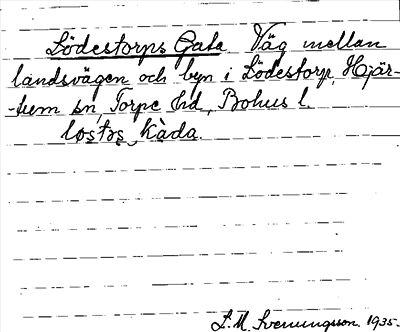 Lödestorps Gata Väg mellan
landsvägen och byn i Lödestorp, Hjär-
-tum sn, Torpe hd, Bohus l.
L. M. Svenungsson. 1935.